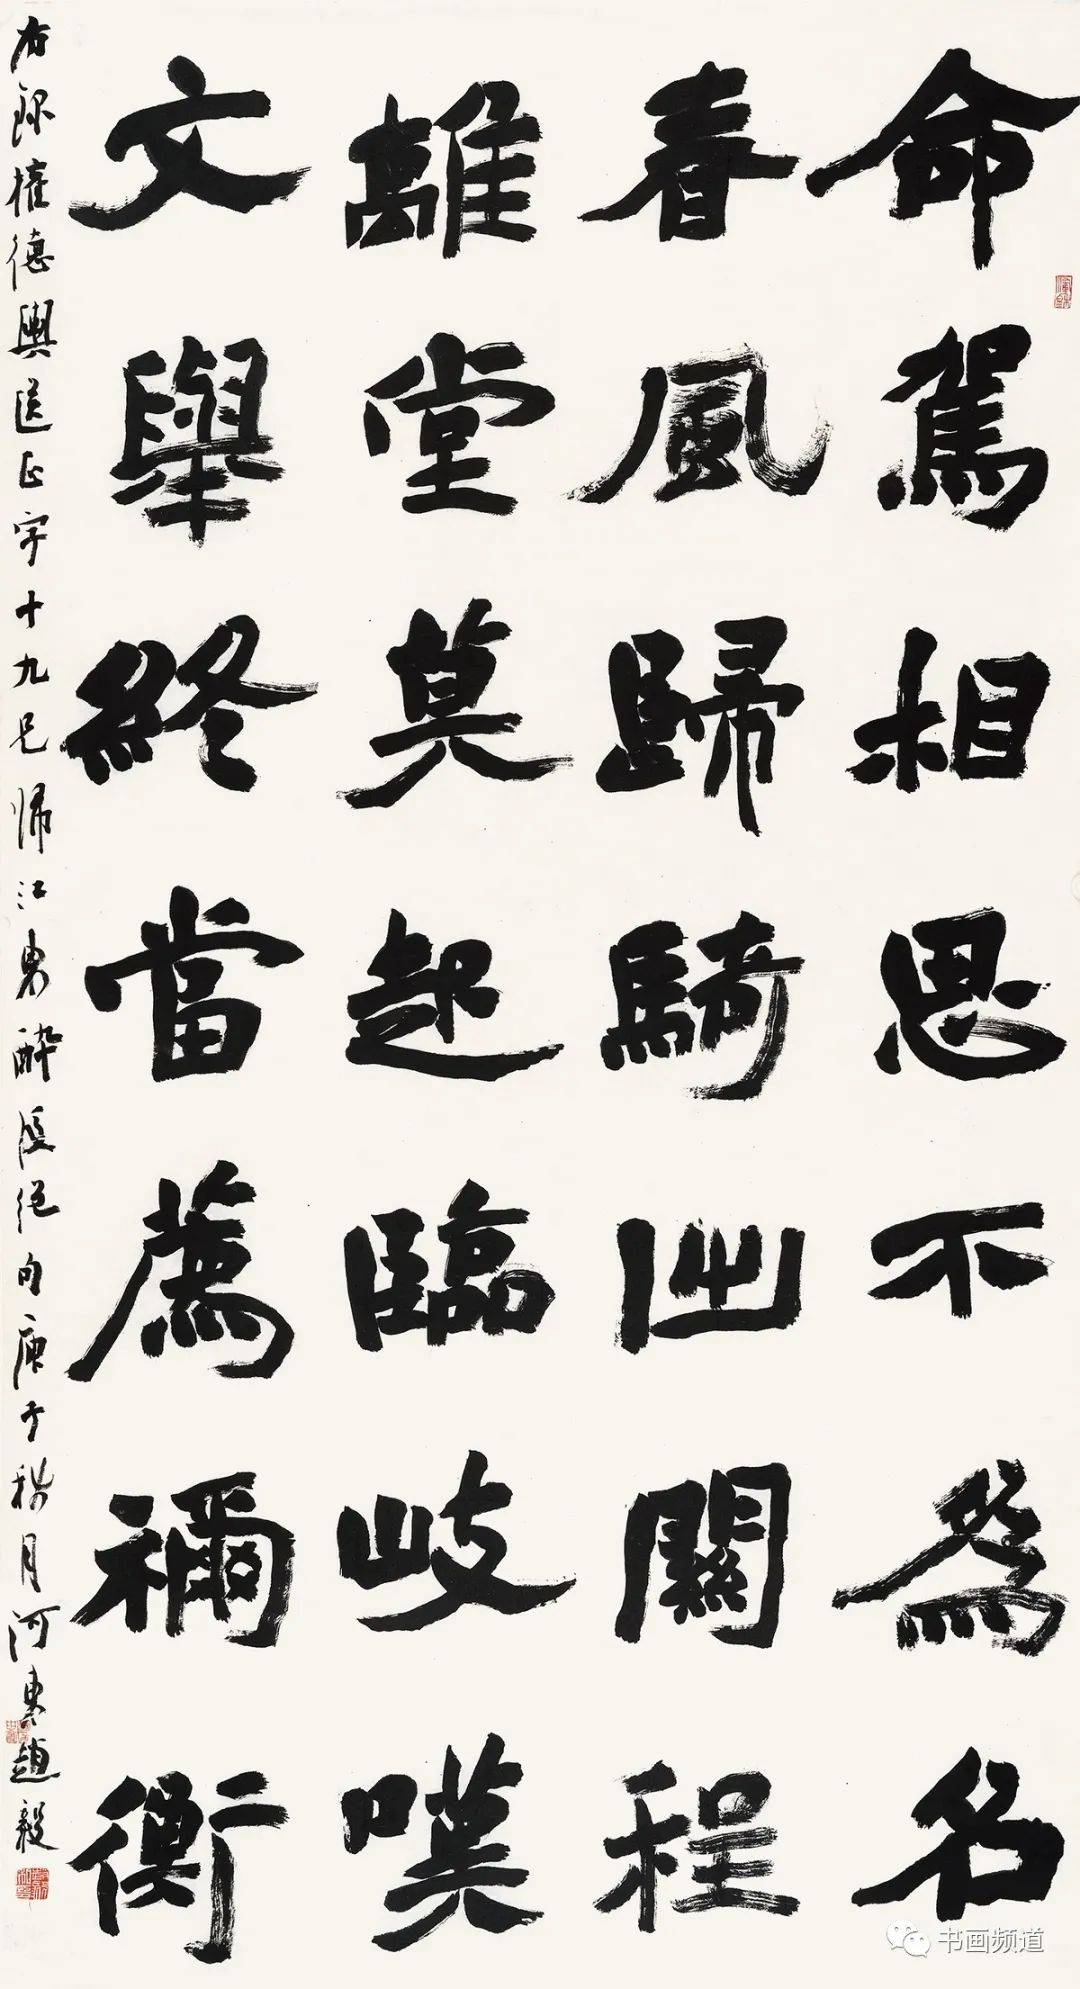 命駕相思不為名
春風歸騎出關程
離堂莫起臨岐嘆
文舉終當薦禰衡
右録權德輿送正字十九兄歸江東醉後絕句庚子秋月河東趙毅
书画频道